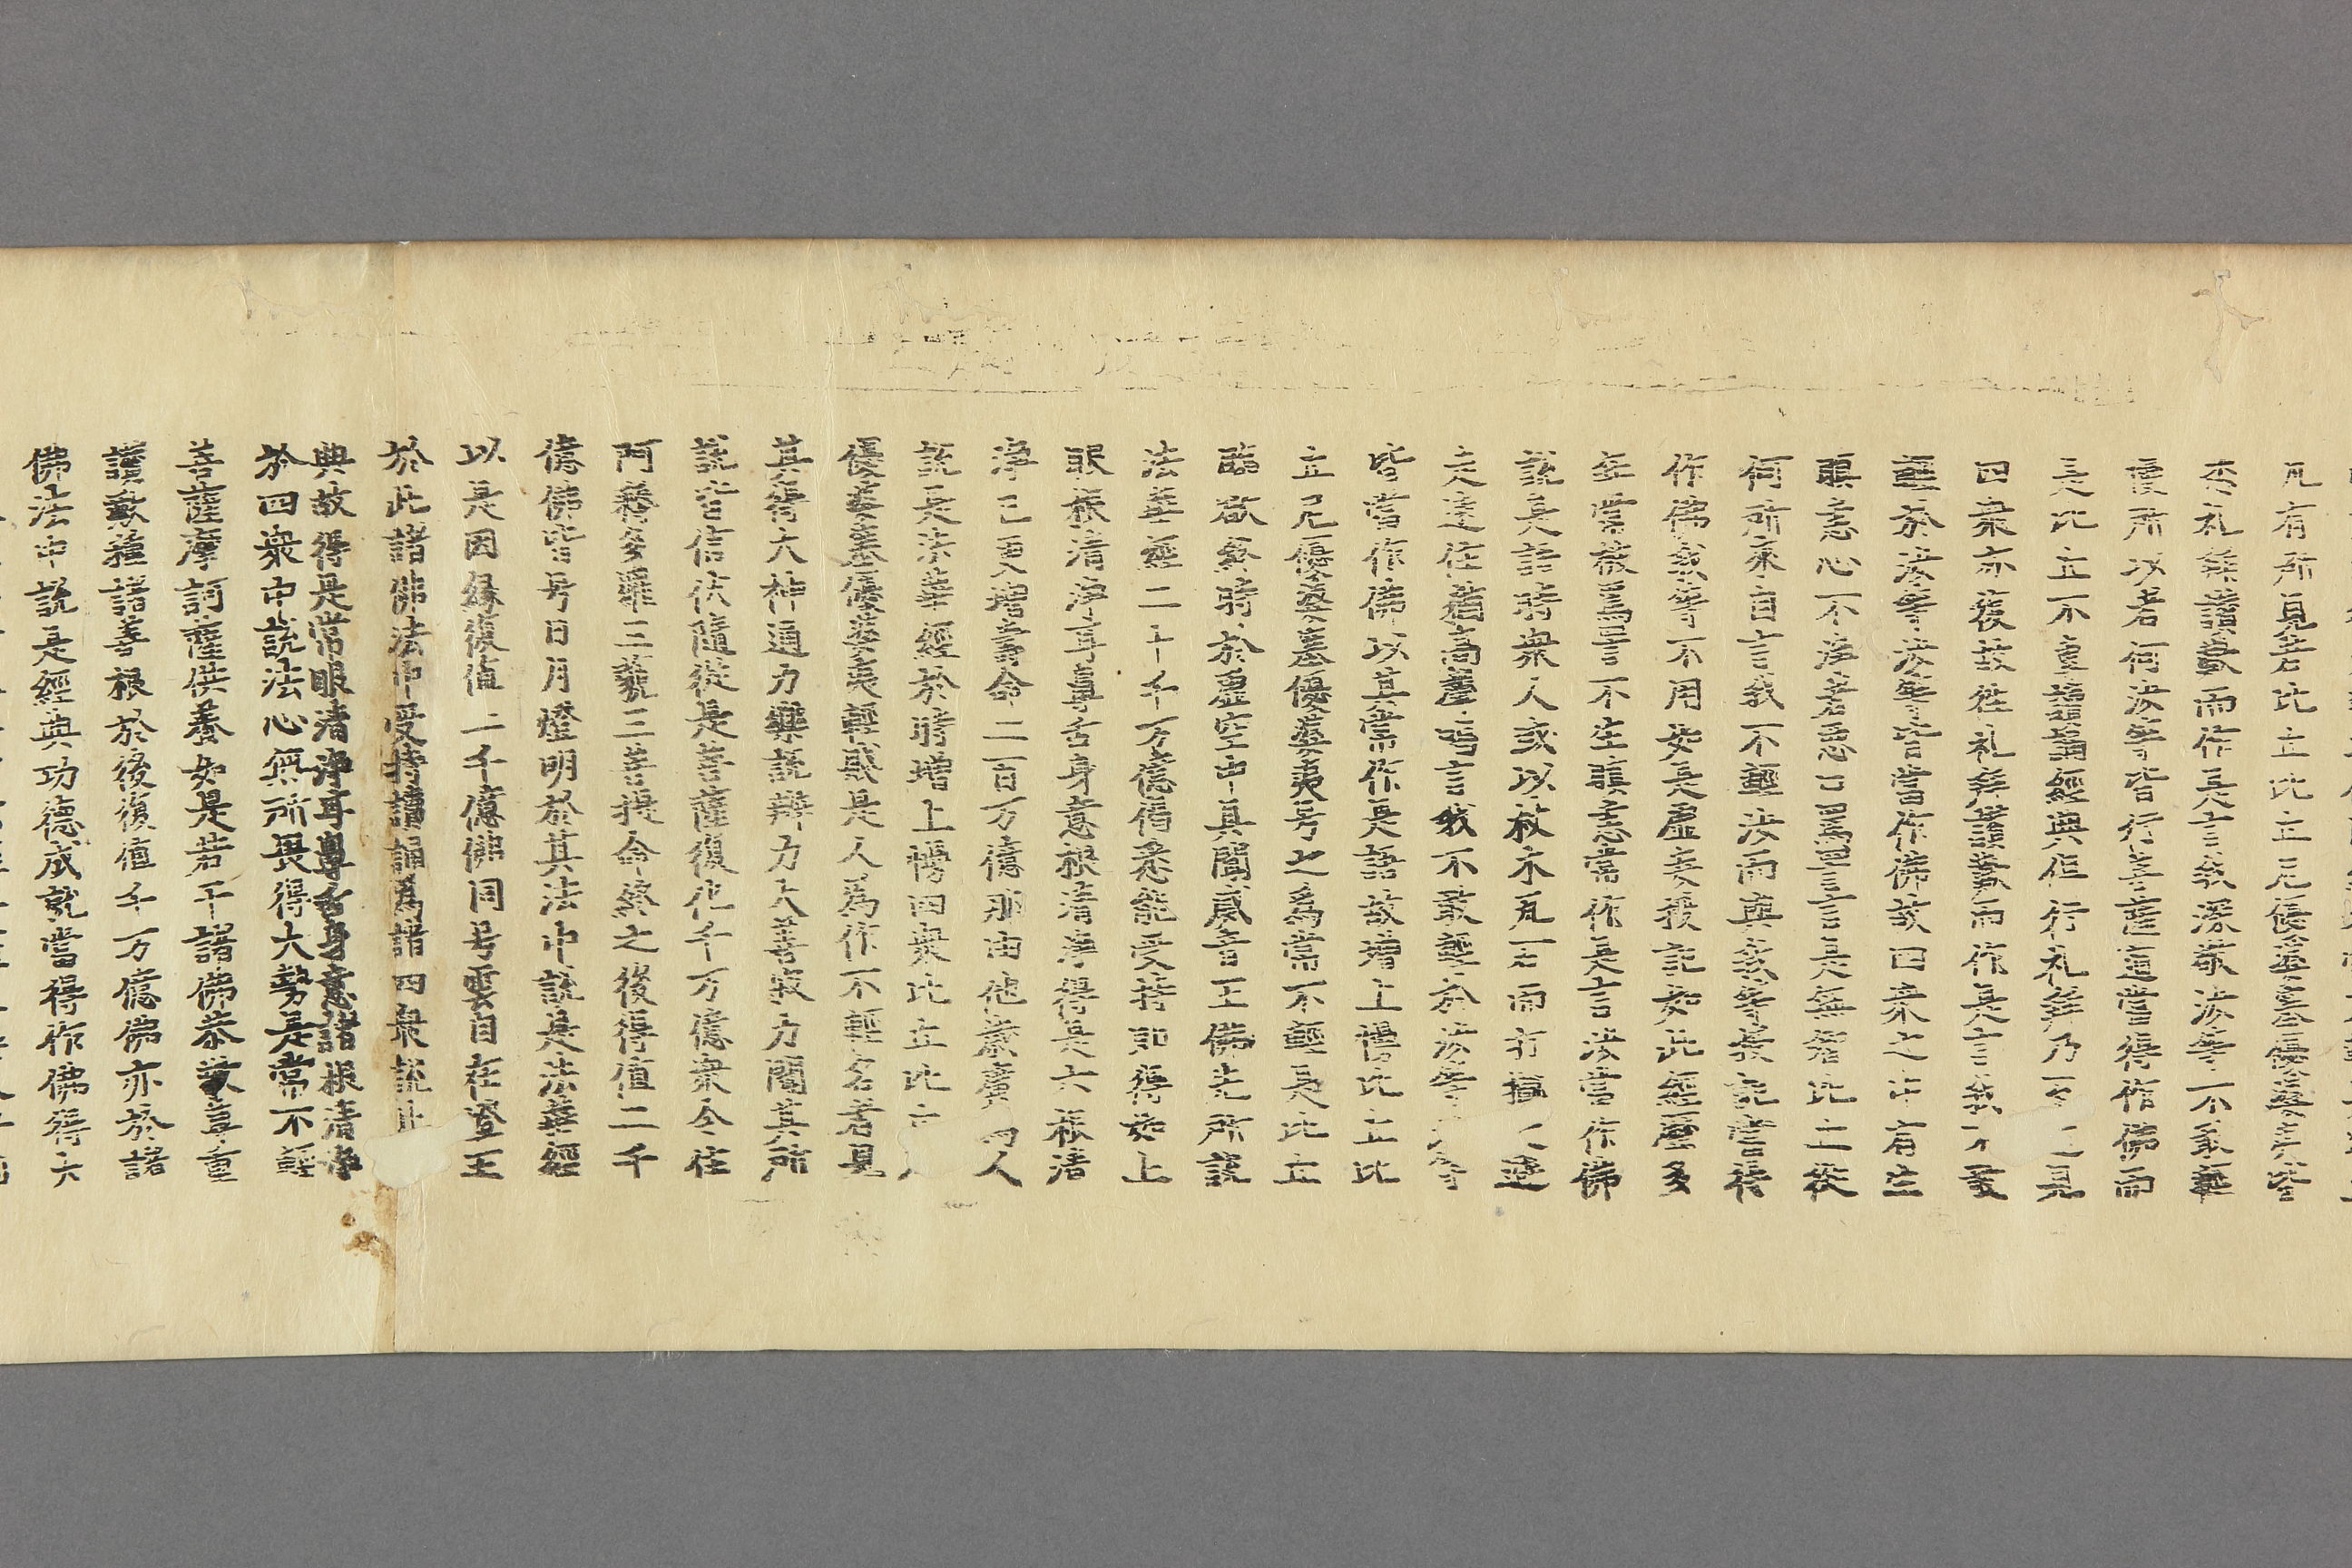 凡有所見若比丘比丘尼優婆塞優婆夷皆
悉礼拜讚歎而作是言我深敬汝等不敢輕
慢所以者何汝等皆行菩薩道當得作佛而
是比丘不專讀誦經典但行礼拜乃至
見
四衆亦復故往礼拜讚歎而作是言我不敢
輕於汝等汝等皆當作佛故四衆之中有生
瞋恚心不淨者惡口罵詈言是無智比丘從
何所來自言我不輕汝而與我等授記當得
作佛我等不用如是虛妄授記如此經歷多
年常被罵詈不生瞋恚常作是言汝當作佛
說是語時衆人或以杖木瓦石而打擲
遠
走遠住猶高聲唱言我不敢輕於汝等
等
皆當作佛以其常作是語故增上慢比丘比
丘尼優婆塞優婆夷号之為常不輕是比丘
臨欲終時於虛空中具聞威音王佛先所說
法華經二十千万億偈悉能受持即得如上
眼根清淨耳鼻舌身意根清淨得是六根清
淨已更增壽命二百万億那由他歲廣
人
說是法華經於時增上慢四衆比丘比
優婆塞優婆夷輕賤是人為作不輕名者見
其得大神通力樂說辯力大善寂力聞其所
說皆信伏隨從是菩薩復化千万億衆令住
阿耨多羅三藐三菩提命終之後得值二千
億佛皆号日月燈明於其法中說是法華經
以是因緣復值二千億佛同号雲自在燈王
於此諸佛法中受持讀誦為諸四衆說此
典故得是常眼清淨耳鼻舌身意諸根清淨
於四衆中說法心無所畏得大勢是常不輕
菩薩摩訶薩供養如是若干諸佛恭敬尊重
讚歎種諸善根於後復值千万億佛亦於諸
佛法中說是經典功德成就當得作佛得大